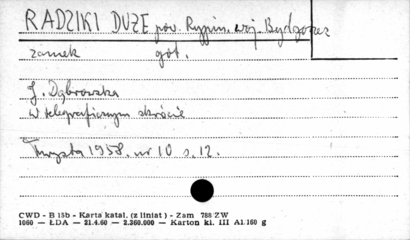 RADZIKI DUŻE pow. Rypin. woj. Bydgoszcz
zamek got.
J. Dąbrowska
w telegraficznym skrócie
Turysta 1958. nr 10 s. 12.
CWD - B 15b - Karta katal. (z liniat) - Zam 788 ZW
1060 — ŁDA — 21.4.60 — 2.260.000 — Karton kl. III A1.160 g